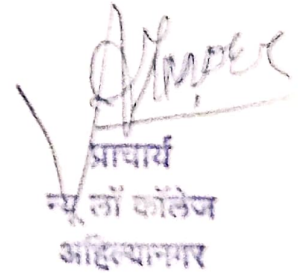 प्राचार्य
न्यू लॉ कॉलेज
अहिल्यानगर